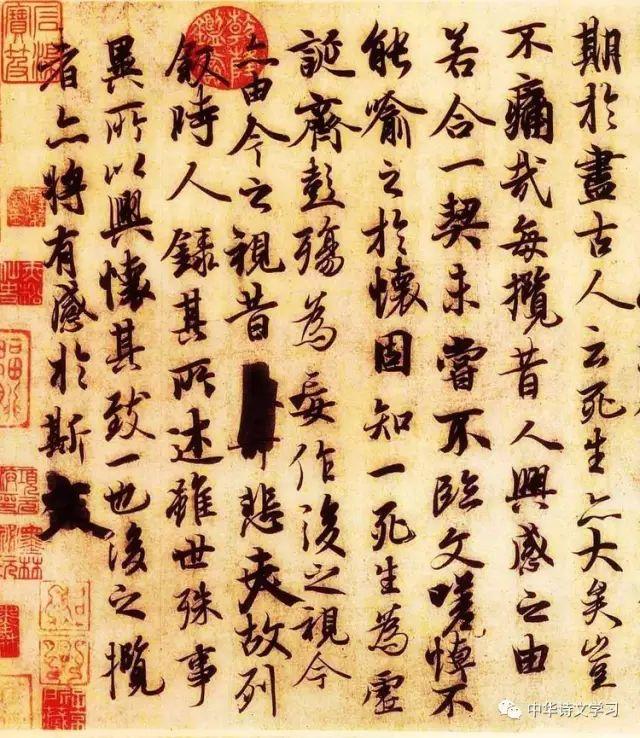 期於盡古人云死生亦大矣豈
不痛哉每攬昔人興感之由
若合一契未嘗不臨文嗟悼不
能喻之於懷固知一死生為虛
誕齊彭殤為妄作後之視今
亦由今之視昔悲夫故列
叙時人錄其所述雖世殊事
異所以興懷其致一也後之攬
者亦將有感於斯文
中华诗文学习